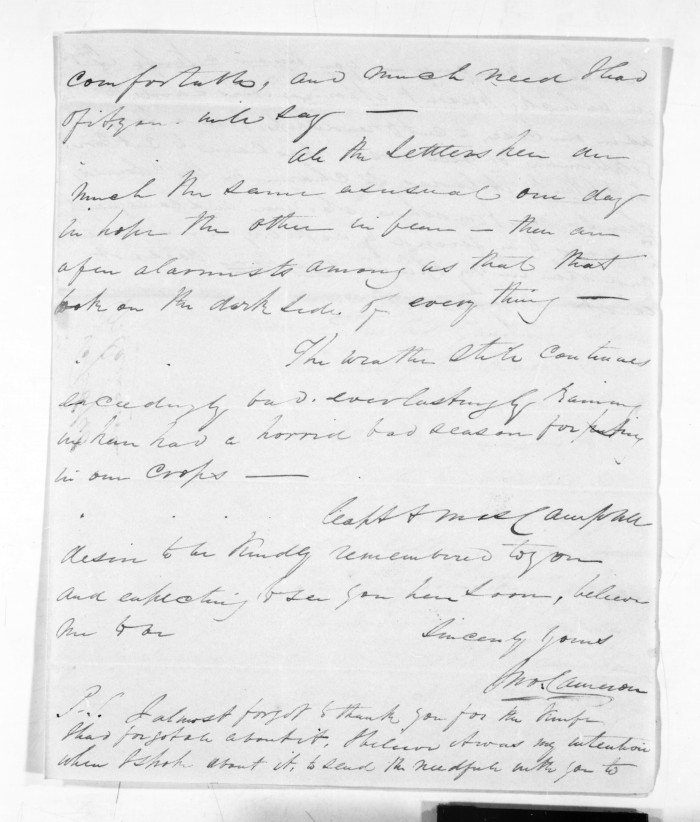 comfortable, and much need I had
of it, you will say —
All the Settlers here are
much the same as usual one day
in hope the other in fear — there are
open alarmists among us that that
look on the dark side of every thing —
The weather still continues
exceedingly bad. everlastingly raining
we have had a horrid bad season for
in our crops —
Capt & Mrs Campbell
desire to be kindly remembered to you
and expecting to see you here soon, believe
me to be Sincerely Yours
Jno Cameron
P.S. I almost forgot to thank you for the knife
I had forgot all about it, I believe it was my intention
when I spoke about it, to send the needful with you to